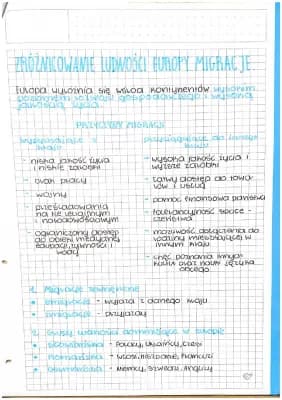 ZRÓŻNICOWANIE LUDNOŚCI EUROPY MIGRACJE
Europa wyróżnia się wśród kontynentów wysokim
poziomem rozwoju gospodarczego i wysoką
jakością życia
PRZYCZYNY MIGRACJI
wypychające z
kraju
- niska jakość życia
i niskie zarobki
- brak pracy
- wojny
- prześladowania
na tle religijnym
i narodowościowym
- ograniczony dostęp
do opieki medycznej
edukacji, żywności i
wody
przyciągające do innego
kraju
- wysoka jakość życia i
wyższe zarobki
- łatwy dostęp do towa-
rów i usług
- pomoc finansowa państwa
- tolerancyjność społe-
czeństwa
- możliwość dołączenia do
rodziny mieszkającej w
innym kraju
- chęć poznania innych
kultur oraz nauki języka
obcego
1. Migracje zewnętrzne
• emigracje - wyjazd z danego kraju
• imigracje - przyjazdy
2. Grupy ludności dominujące w Europie
• słowiańska - Polacy, Ukraińcy, Czesi
• romańska - Włosi, Hiszpanie, Francuzi
• germańska - Niemcy, Szwedzi, Anglicy